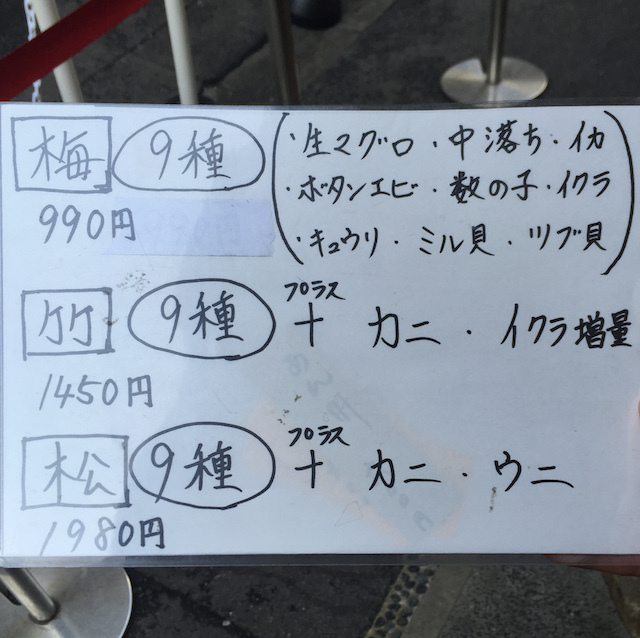 梅 9種 (・生マグロ・中落ち・イカ
・ボタンエビ・数の子・イクラ
・キュウリ・ミル貝・ツブ貝)
990円
竹 9種 プラス + カニ・イクラ増量
1450円
松 9種 プラス + カニ・ウニ
1980円